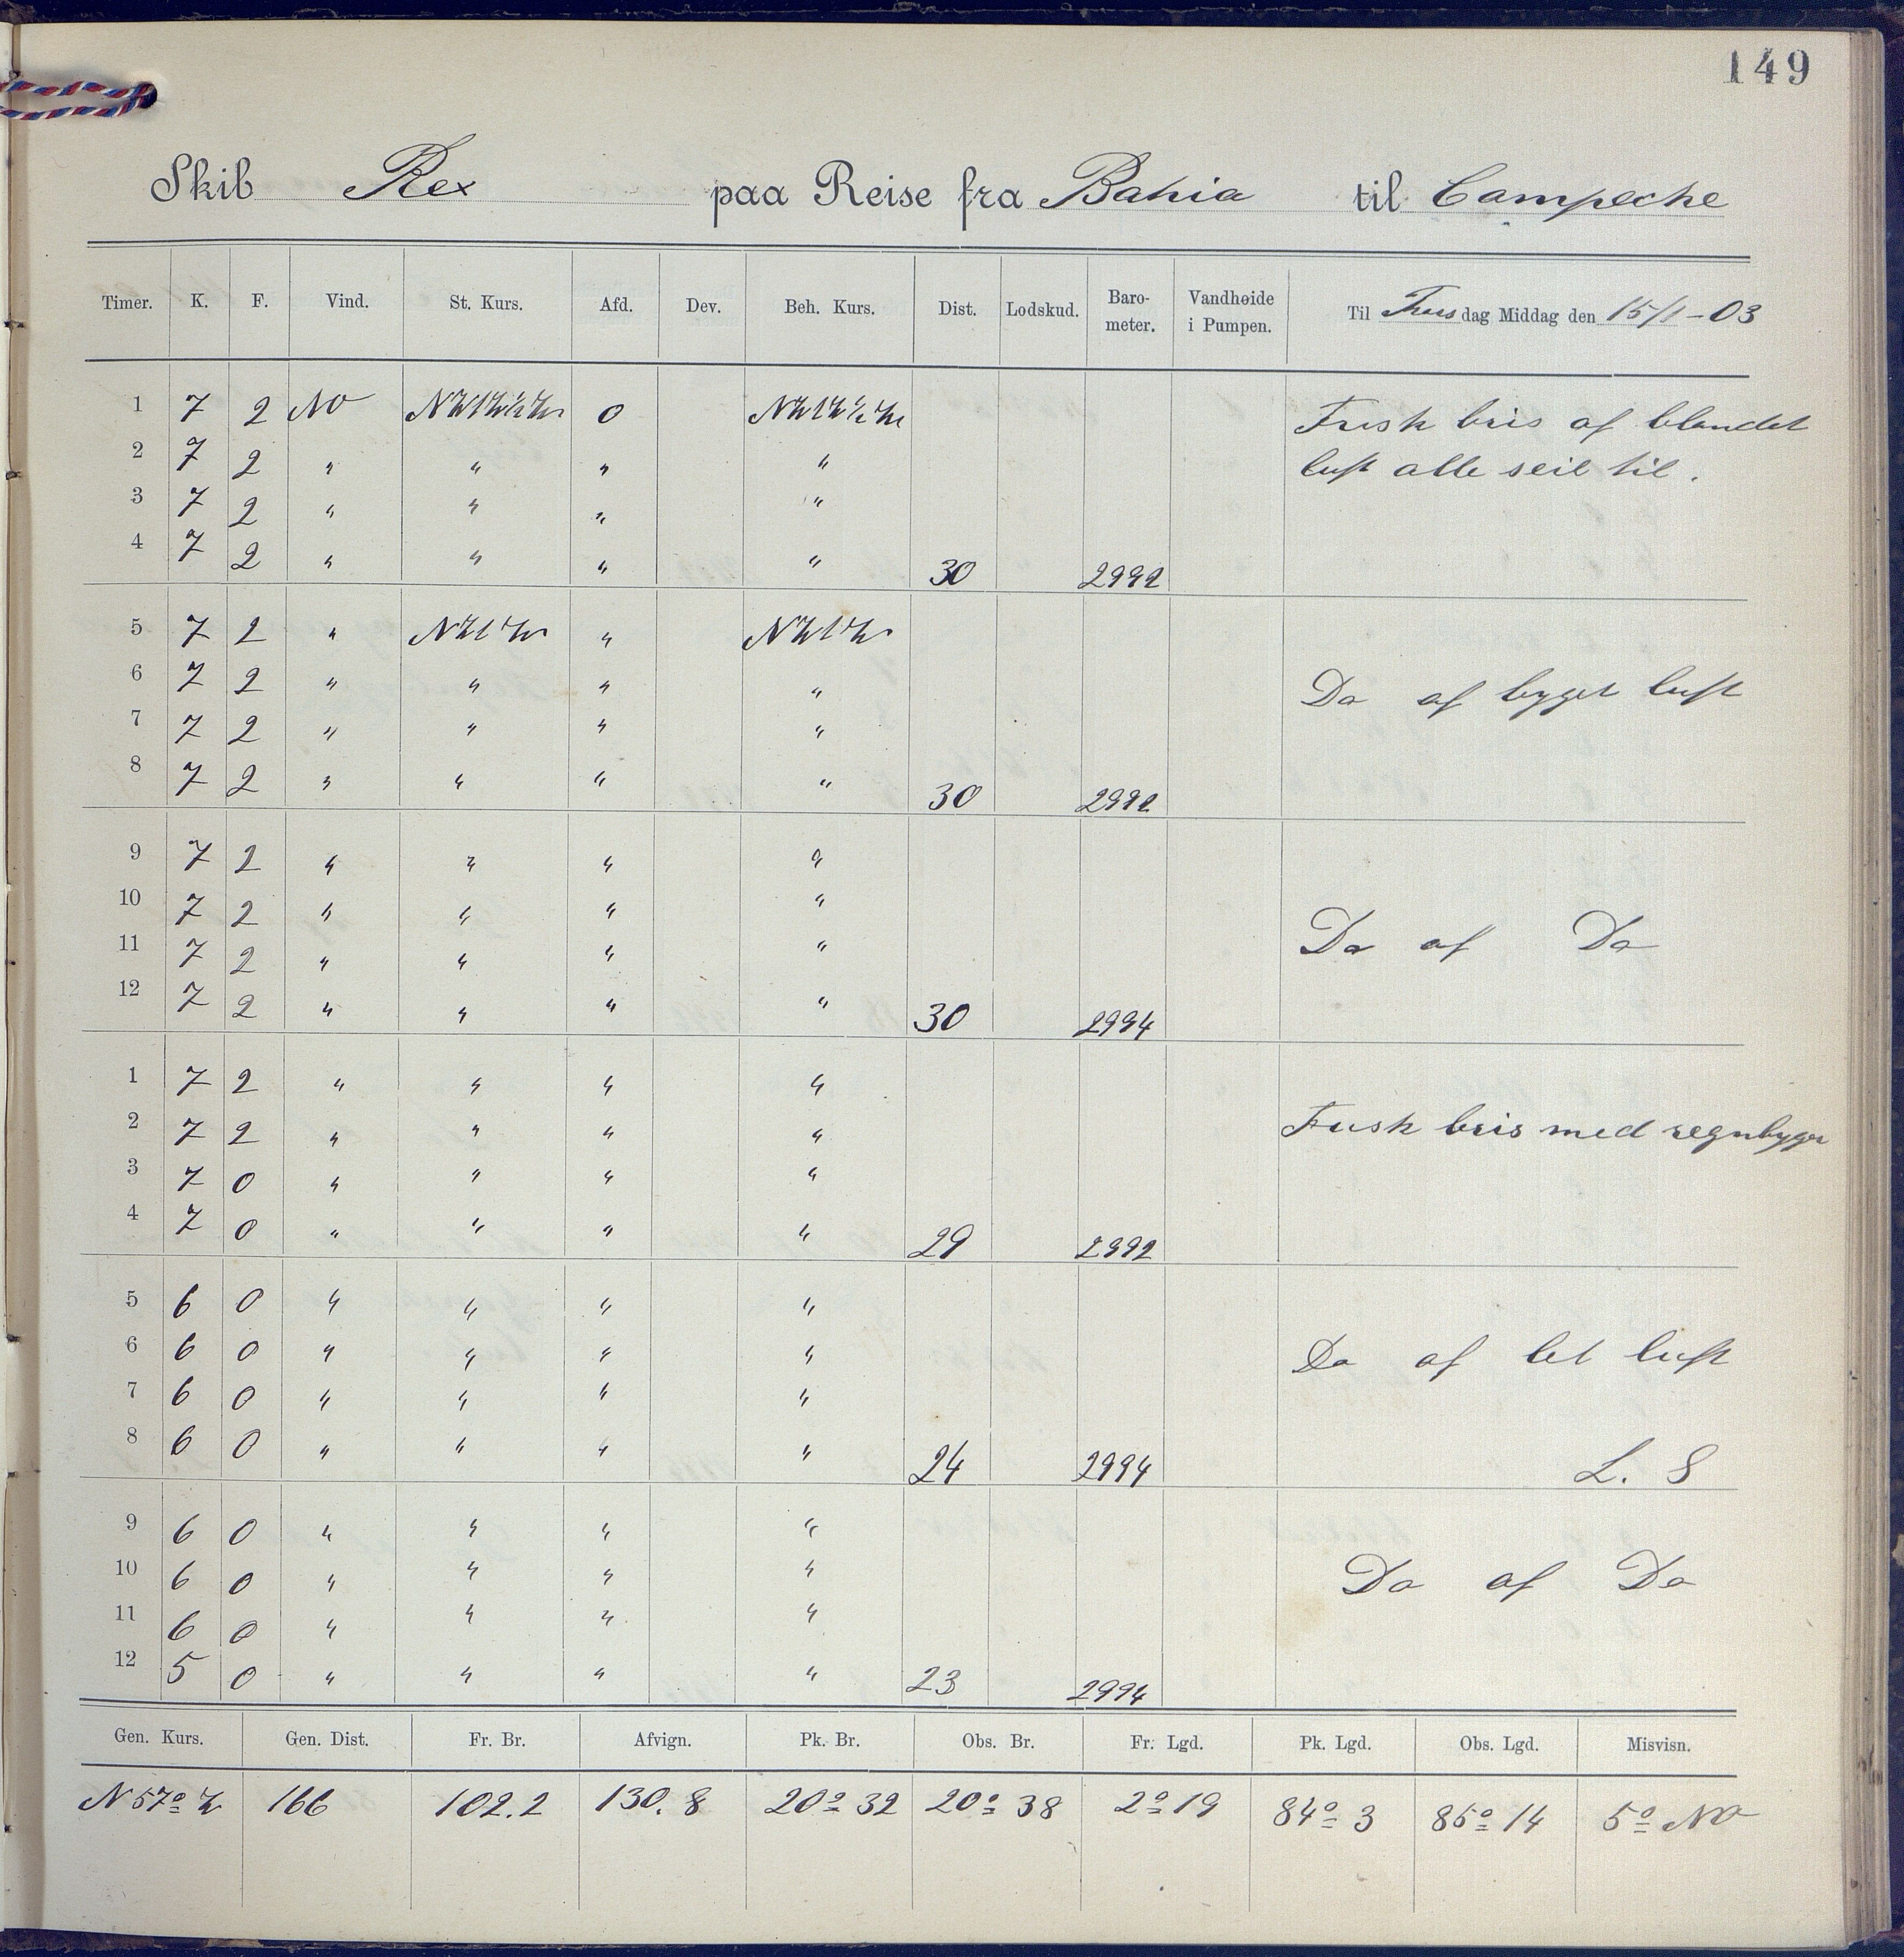 149
Skib Rex paa Reise fra Bahia til Campeche
Timer. K. F. Vind. St. Kurs. Afd. Dev. Beh. Kurs. Dist. Lodskud. Baro-meter. Vandhøide i Pumpen. Til Tors dag Middag den 15/1-03
1 7 2 NO 0 Frisk bris af blandet
2 7 2 " " " " luft alle seil til.
3 7 2 " " " "
4 7 2 " " " " 30 2992
5 7 2 " "
6 7 2 " " " " Do af byget luft
7 7 2 " " " "
8 7 2 " " " " 30 2992
9 7 2 " " " "
10 7 2 " " " "
11 7 2 " " " " Do af Do
12 7 2 " " " " 30 2994
1 7 2 " " " "
2 7 2 " " " " Frisk bris med regnbyger
3 7 0 " " " "
4 7 0 " " " " 29 2992
5 6 0 " " " "
6 6 0 " " " " Do af let luft
7 6 0 " " " "
8 6 0 " " " " 24 2994 L. S
9 6 0 " " " "
10 6 0 " " " " Do af Do
11 6 0 " " " "
12 5 0 " " " " 23 2994
Gen. Kurs. Gen. Dist. Fr. Br. Afvign. Pk. Br. Obs. Br. Fr. Lgd. Pk. Lgd. Obs. Lgd. Misvisn.
N 57º V 166 102.2 130.8 20º 32 20º 38 2º 19 84º 3 85º 14 5º NO